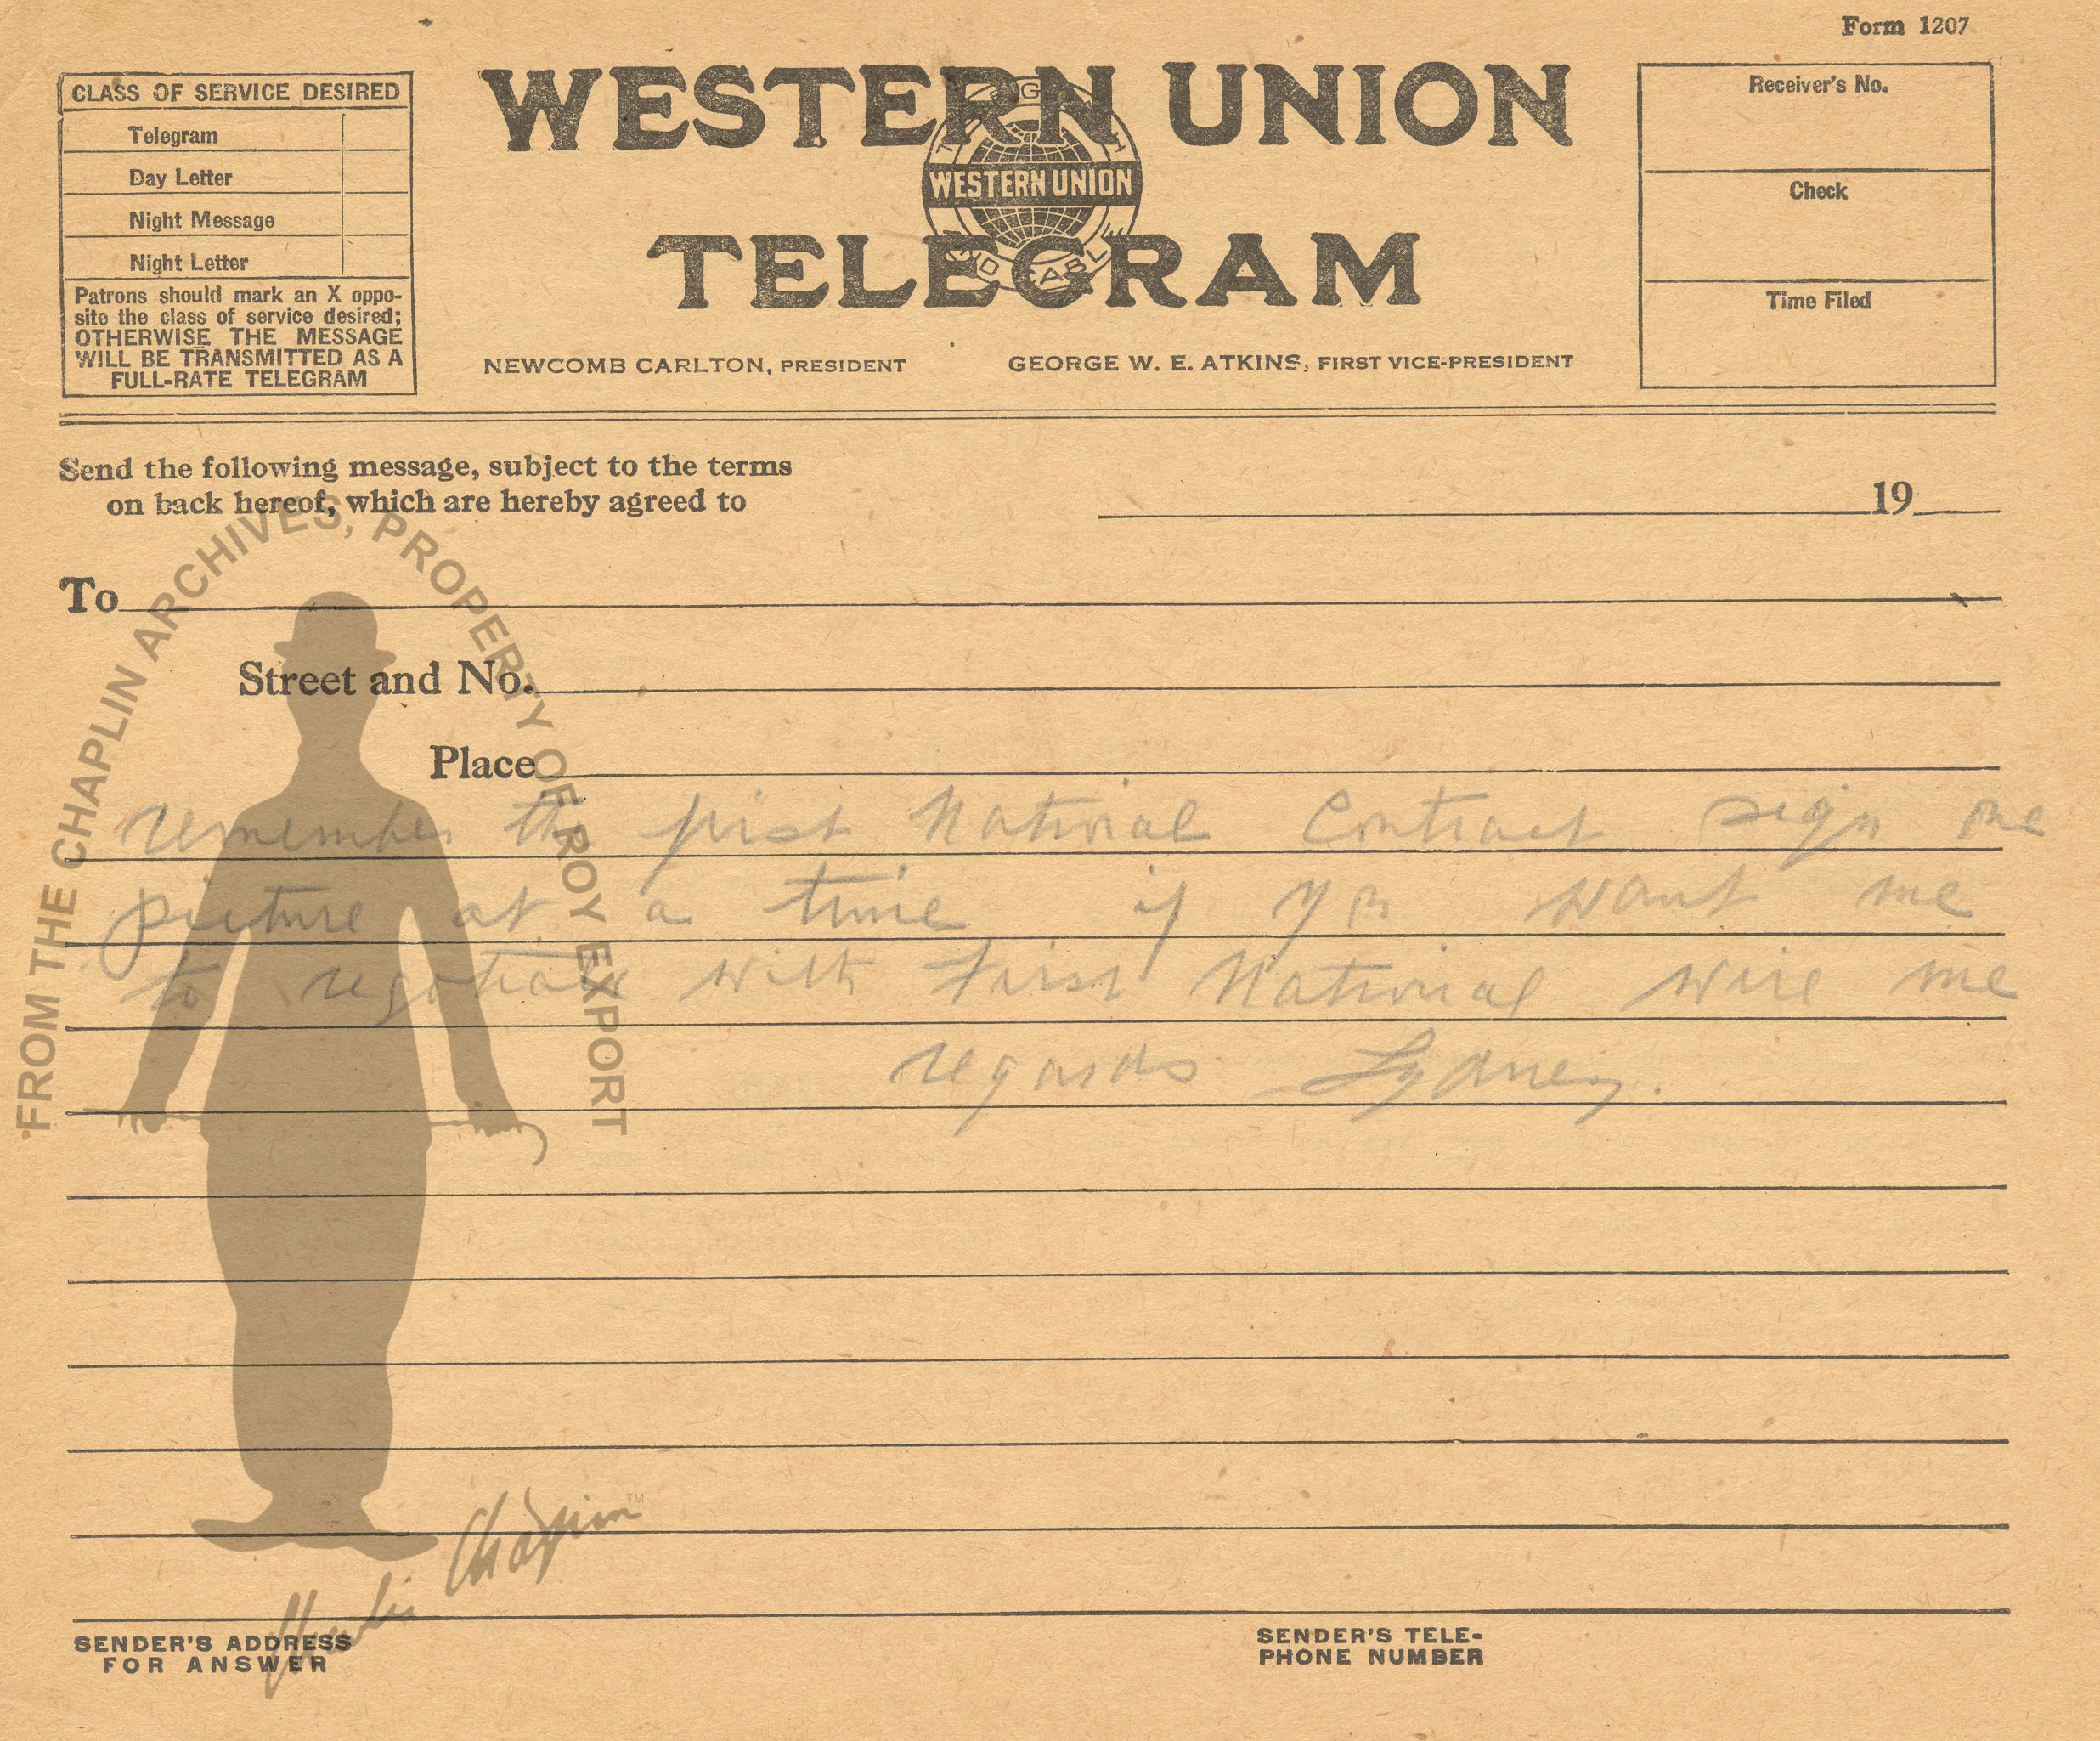 Form 1207
CLASS OF SERVICE DESIRED
Telegram
Day Letter
Night Message
Night Letter
Patrons should mark an X oppo-
site the class of service desired;
OTHERWISE THE MESSAGE
WILL BE TRANSMITTED AS A
FULL-RATE TELEGRAM
WESTERN UNION
WESTERN UNION
TELEGRAM
NEWCOMB CARLTON, PRESIDENT
GEORGE W. E. ATKINS, FIRST VICE-PRESIDENT
Receiver's No.
Check
Time Filed
Send the following message, subject to the terms
on back hereof, which are hereby agreed to
19
To
Street and No.
Place
remember the first National Contract sign one
picture at a time if you want me
to negotiate with First National wire me
regards Sydney.
FROM THE CHAPLIN ARCHIVES, PROPERTY OF ROY EXPORT
Charlie Chaplin TM
SENDER'S ADDRESS
FOR ANSWER
SENDER'S TELE-
PHONE NUMBER